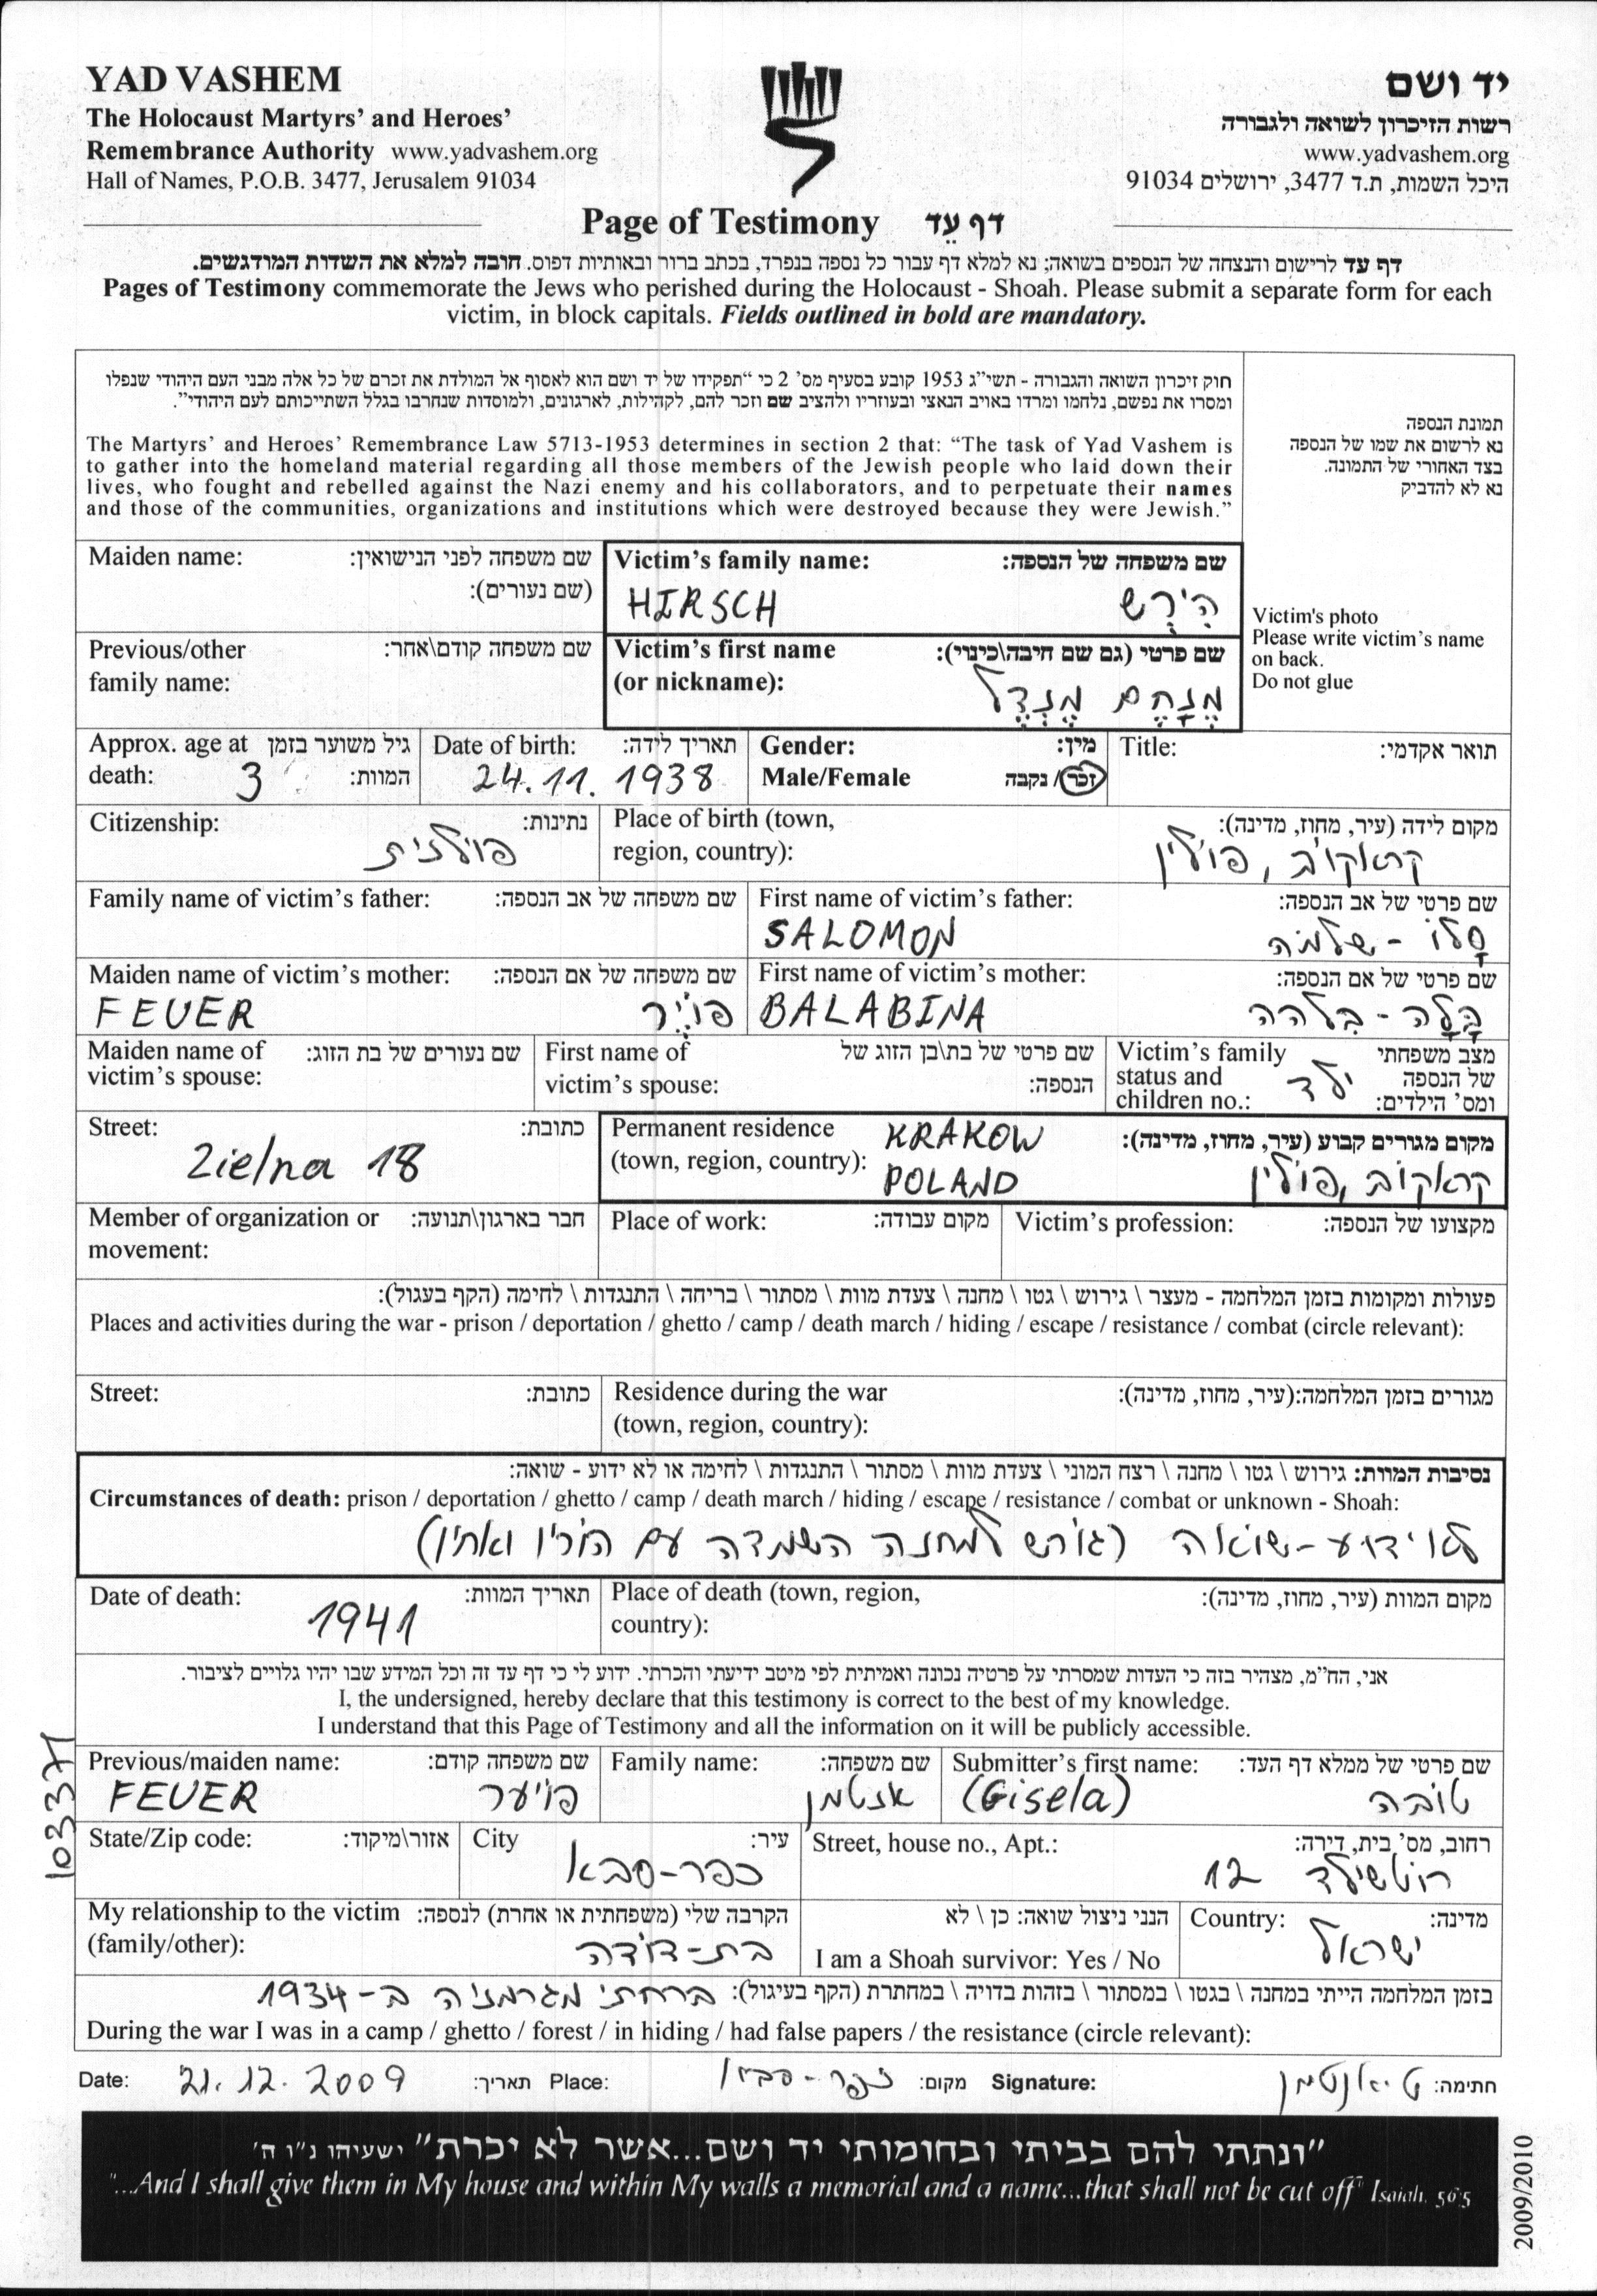 YAD VASHEM
The Holocaust Martyrs' and Heroes'
Remembrance Authority www.yadvashem.org
Hall of Names, P.O.B. 3477, Jerusalem 91034
יד ושם
רשות הזיכרון לשואה ולגבורה
www.yadvashem.org
היכל השמות, ת.ד 3477, ירושלים 91034
Page of Testimony דף עֵד
דף עד לרישום והנצחה של הנספים בשואה; נא למלא דף עבור כל נספה בנפרד, בכתב ברור ובאותיות דפוס. חובה למלא את השדות המודגשים.
Pages of Testimony commemorate the Jews who perished during the Holocaust - Shoah. Please submit a separate form for each
victim, in block capitals. Fields outlined in bold are mandatory.
חוק זיכרון השואה והגבורה - תשי"ג 1953 קובע בסעיף מס' 2 כי "תפקידו של יד ושם הוא לאסוף אל המולדת את זכרם של כל אלה מבני העם היהודי שנפלו
ומסרו את נפשם, נלחמו ומרדו באויב הנאצי ובעוזריו ולהציב שם וזכר להם, לקהילות, לארגונים, ולמוסדות שנחרבו בגלל השתייכותם לעם היהודי".
The Martyrs' and Heroes' Remembrance Law 5713-1953 determines in section 2 that: "The task of Yad Vashem is
to gather into the homeland material regarding all those members of the Jewish people who laid down their
lives, who fought and rebelled against the Nazi enemy and his collaborators, and to perpetuate their names
and those of the communities, organizations and institutions which were destroyed because they were Jewish."
תמונת הנספה
נא לרשום את שמו של הנספה
בצד האחורי של התמונה.
נא לא להדביק
Victim's photo
Please write victim's name
on back.
Do not glue
Maiden name: שם משפחה לפני הנישואין:
(שם נעורים):
Victim's family name: שם משפחה של הנספה:
HIRSCH הִירְש
Previous/other שם משפחה קודם\אחר:
family name:
Victim's first name שם פרטי (גם שם חיבה\כינוי):
(or nickname): מְנַחֵם מֶנְדֶל
Approx. age at גיל משוער בזמן
death: 3 המוות:
Date of birth: תאריך לידה:
24.11.1938
Gender: מין:
Male/Female זכר/ נקבה
Title: תואר אקדמי:
Citizenship: נתינות:
פולנית
Place of birth (town, מקום לידה (עיר, מחוז, מדינה):
region, country): קראקוב, פולין
Family name of victim's father: שם משפחה של אב הנספה:
First name of victim's father: שם פרטי של אב הנספה:
SALOMON סָלוֹ - שלמה
Maiden name of victim's mother: שם משפחה של אם הנספה:
FEUER פוֹיֶר
First name of victim's mother: שם פרטי של אם הנספה:
BALABINA בָּלָה - בלהה
Maiden name of שם נעורים של בת הזוג:
victim's spouse:
First name of שם פרטי של בת\בן הזוג של
victim's spouse: הנספה:
Victim's family מצב משפחתי
status and של הנספה
children no.: ומס' הילדים:
ילד
Street: כתובת:
Zielna 18
Permanent residence KRAKOW מקום מגורים קבוע (עיר, מחוז, מדינה):
(town, region, country): POLAND קראקוב, פולין
Member of organization or חבר בארגון\תנועה:
movement:
Place of work: מקום עבודה:
Victim's profession: מקצועו של הנספה:
פעולות ומקומות בזמן המלחמה - מעצר \ גירוש \ גטו \ מחנה \ צעדת מוות \ מסתור \ בריחה \ התנגדות \ לחימה (הקף בעגול):
Places and activities during the war - prison / deportation / ghetto / camp / death march / hiding / escape / resistance / combat (circle relevant):
Street: כתובת:
Residence during the war מגורים בזמן המלחמה:(עיר, מחוז, מדינה):
(town, region, country):
נסיבות המוות: גירוש \ גטו \ מחנה \ רצח המוני \ צעדת מוות \ מסתור \ התנגדות \ לחימה או לא ידוע - שואה:
Circumstances of death: prison / deportation / ghetto / camp / death march / hiding / escape / resistance / combat or unknown - Shoah:
לא ידוע - שואה (גורש למחנה השמדה עם הוריו ואחיו)
Date of death: תאריך המוות:
1941
Place of death (town, region, מקום המוות (עיר, מחוז, מדינה):
country):
אני, הח"מ, מצהיר בזה כי העדות שמסרתי על פרטיה נכונה ואמיתית לפי מיטב ידיעתי והכרתי. ידוע לי כי דף עד זה וכל המידע שבו יהיו גלויים לציבור.
I, the undersigned, hereby declare that this testimony is correct to the best of my knowledge.
I understand that this Page of Testimony and all the information on it will be publicly accessible.
Previous/maiden name: שם משפחה קודם:
FEUER פויער
Family name: שם משפחה:
אנטמן
Submitter's first name: שם פרטי של ממלא דף העד:
(Gisela) טובה
State/Zip code: אזור\מיקוד:
City עיר:
כפר-סבא
Street, house no., Apt.: רחוב, מס' בית, דירה:
רוטשילד 12
My relationship to the victim הקרבה שלי (משפחתית או אחרת) לנספה:
(family/other): בת-דודה
הנני ניצול שואה: כן \ לא
I am a Shoah survivor: Yes / No
Country: מדינה:
ישראל
בזמן המלחמה הייתי במחנה \ בגטו \ במסתור \ בזהות בדויה \ במחתרת (הקף בעיגול): ברחתי מגרמניה ב-1934
During the war I was in a camp / ghetto / forest / in hiding / had false papers / the resistance (circle relevant):
Date: 21.12.2009 תאריך: Place: כפר-סבא מקום: Signature: ט. אנטמן חתימה:
"ונתתי להם בביתי ובחומותי יד ושם...אשר לא יכרת" ישעיהו נ"ו ה'
"...And I shall give them in My house and within My walls a memorial and a name...that shall not be cut off" Isaiah, 56:5
2009/2010